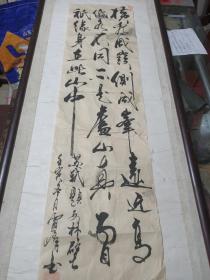 橫看成嶺側成峯遠近高
低各不同不識廬山真面目
祇緣身在此山中 蘇軾題西林壁